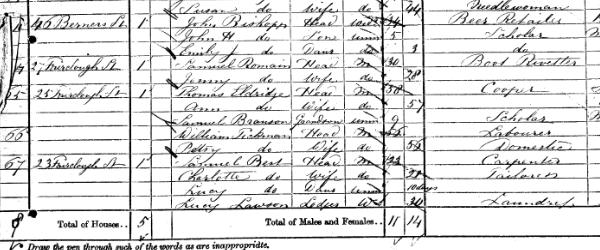 Susan do Wife do 44 Needlewoman
46 Berners St 1 John Biskopp Head Beer Retailer
John H do Son unm 5 Scholar
Emily J do Daur do 3 do
27 Fairclough St 1 Samuel Romain Head M 30 Boot Rivetter
Jenny do Wife do 28
65 25 Fairclough St 1 Thomas Eldridge Head M 58 Cooper
Ann do Wife do 57
Samuel Branson Grandson unm 9 Scholar
66 William Tickman Head M Labourer
Betsy do Wife do Domestic
67 23 Fairclough St 1 Samuel Bert Head M Carpenter
Charlotte do Wife do 21 Tailoress
Lucy do Daur unm 10 days
Lucy Lawson Laundress
Total of Houses.. 5 Total of Males and Females.. 11 14
Draw the pen through such of the words as are inappropriate.